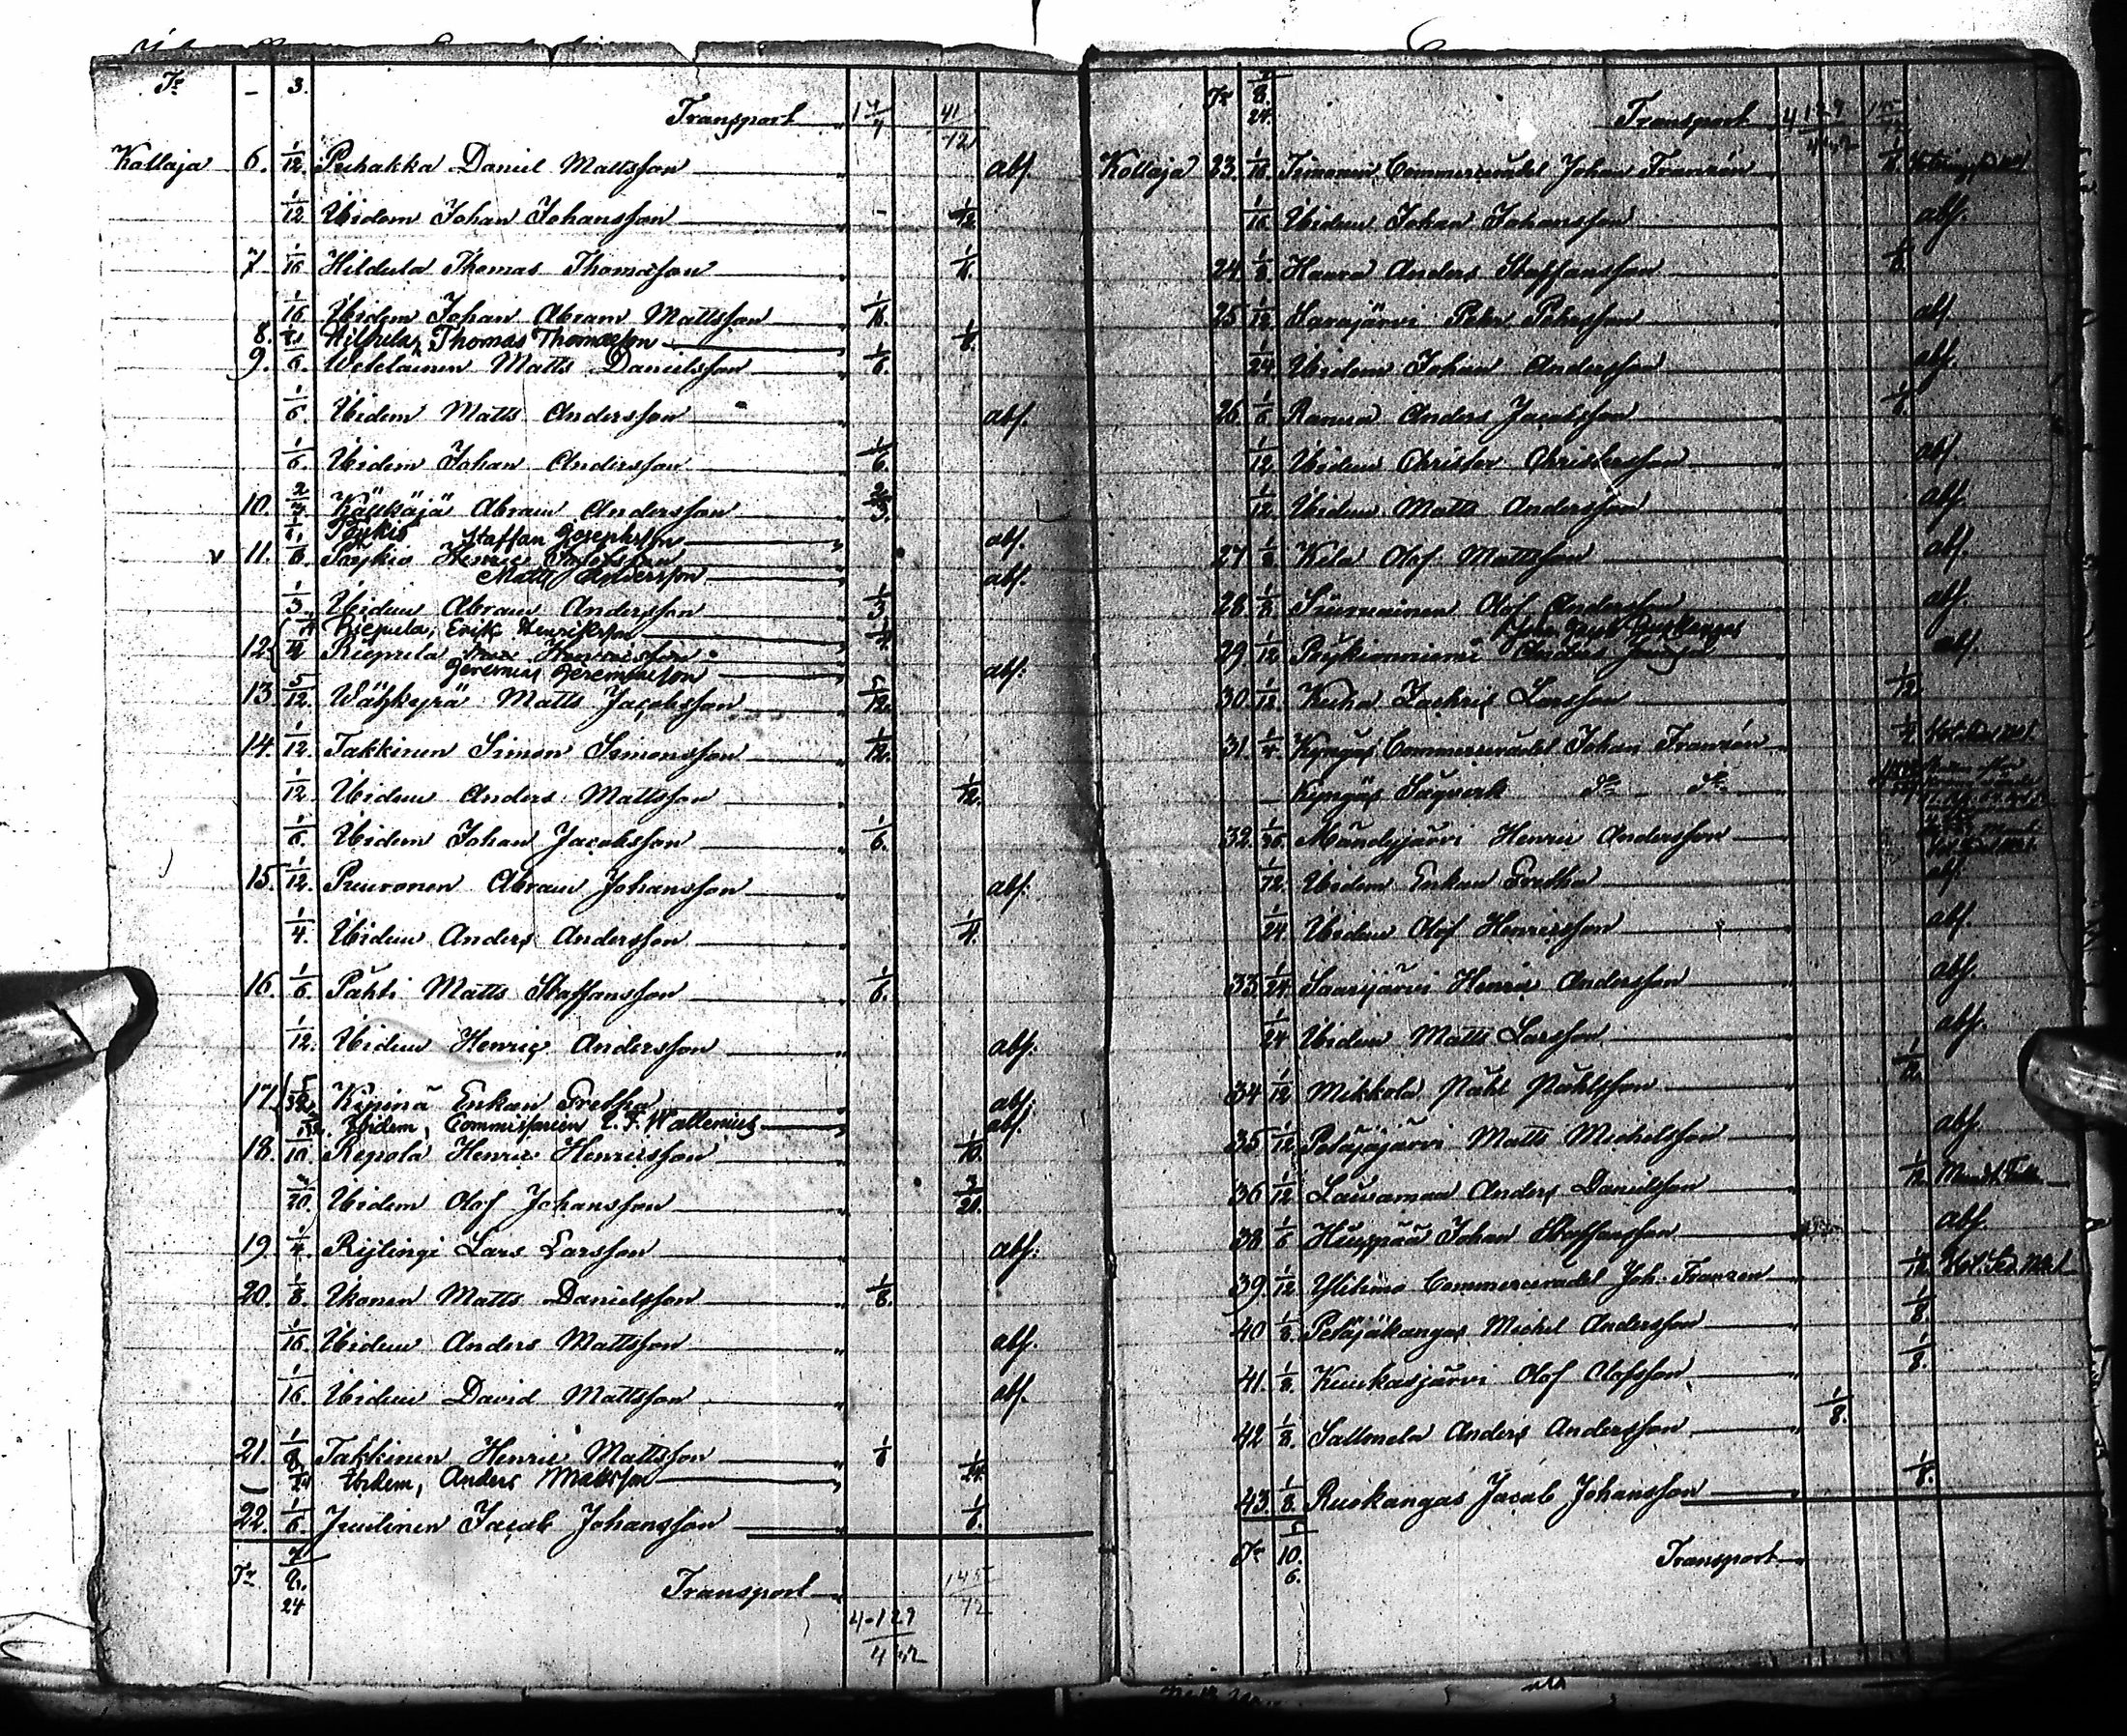 Tr - 3.
Transport " 1 7/4 41/12
Kollaja 6. 1/12. Piehakka Daniel Mattsson " abs.
1/12 Ibidem Johan Johansson " - 1/12
7. 1/16 Hildula Thomas Thomasson " 1/6.
1/16 Ibidem Johan Abram Mattsson " 1/16.
8. Thomas Thomasson " 1/6.
9. 1/6. Wetelainen Matts Danielsson " 1/6.
1/6. Ibidem Matts Andersson abs.
1/6. Ibidem Johan Andersson " 1/6.
10. 2/3. Kälkäjä Abram Andersson " 2/3.
1/6. Pöykiö Staffan Josephsson " abs.
v 11. 1/6. Pöykiö Henric
Matts Andersson " abs.
1/3. Ibidem Abram Andersson " 1/3
1/4 Riepula, Erik Henriksson 1/4.
12. 1/12 Riepula Henricsson
Jeremias Jeremiasson " abs.
13. 5/12. Wähkyrä Matts Jacobsson " 5/12.
14. 1/12. Takkinen Simon Simonsson " 1/12.
1/12. Ibidem Anders Mattsson " 1/12.
1/6. Ibidem Johan Jacobsson " 1/6.
15. 1/12. Puuronen Abram Johansson " abs.
1/4. Ibidem Anders Andersson " 1/4.
16. 1/6. Pähti Matts Staffansson " 1/6.
1/12. Ibidem Henric Andersson " abs.
17. 5/32. Kipinä Enkan Gretha " abs.
Ibidem, Commissarien C. F. Wallenius " abs.
18. 1/10. Repola Henric Henricsson " 1/10.
3/20. Ibidem Olof Johansson " 3/20.
19. 1/4. Rijtingi Lars Larsson " abs.
20. 1/8. Ukonen Matts Danielsson " 1/8.
1/16. Ibidem Anders Mattsson " abs.
1/16. Ibidem David Mattsson " abs.
21. 1/8 Takkinen Henric Mattsson " 1/8
- 1/24 Ibidem, Anders Mattsson 1/24.
22. 1/6. Juutinen Jacob Johansson " 1/6.
Tr 7/24
Transport " 145/72
4-129/432
Tr 8. 7/24.
Transport " 4 129/432 145/72
Kollaja 23. 1/16. Timonen Commercerådet Johan Franzén " 1/8.
1/16 Ibidem Johan Johansson " abs.
24. 1/8 Haara Anders Staffansson " 1/8.
25 1/12 Sarajärvi Peter Pehrsson " abs.
1/24 Ibidem Johan Andersson " abs.
26. 1/6 Ranua Anders Jacobsson " 1/6.
1/12 Ibidem Christer Christersson " abs.
1/12 Ibidem Matts Andersson " abs.
27 1/8 Kela Olof Mattsson " abs.
28. 1/8 Siurnainen Olof Andersson " abs.
29 1/12 Pöykiönniemi Anders " abs.
30. 1/12. Kuha Zachris Larsson " 1/12
31. 1/4. Kyngäs Commercerådet Johan Franzén " 1/4
- Kyngäs Sågverk Do - Do
32. 1/36. Mändyjärvi Henric Andersson "
1/12. Ibidem Enkan Gretha " abs.
1/24. Ibidem Olof Henricsson " abs.
33 1/24. Saarijärvi Henric Andersson " abs.
1/24 Ibidem Matts Larsson " abs.
34 1/12 Mikkola Påhl Påhlsson " 1/12.
35 1/12 Petäjäjärvi Matts Michelsson " abs.
36 1/12 Lausamaa Anders Danielsson " 1/12.
38 1/6 Huuspää Johan Staffansson " abs.
39. 1/12. Ylisimo Commercerådet Joh. Franzén " 1/12.
40 1/8. Petäjäkangas Michel Andersson " 1/8.
41. 1/8. Kuukasjärvi Olof Olofsson " 1/8.
42 1/8. Saltonela Anders Andersson " 1/8.
43. 1/8. Ruokangas Jacob Johansson " 1/8.
Tr 10. 5/6.
Transport "